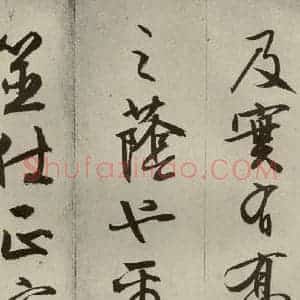 及實有
之蔭也
筮仕正
shufazidao.com